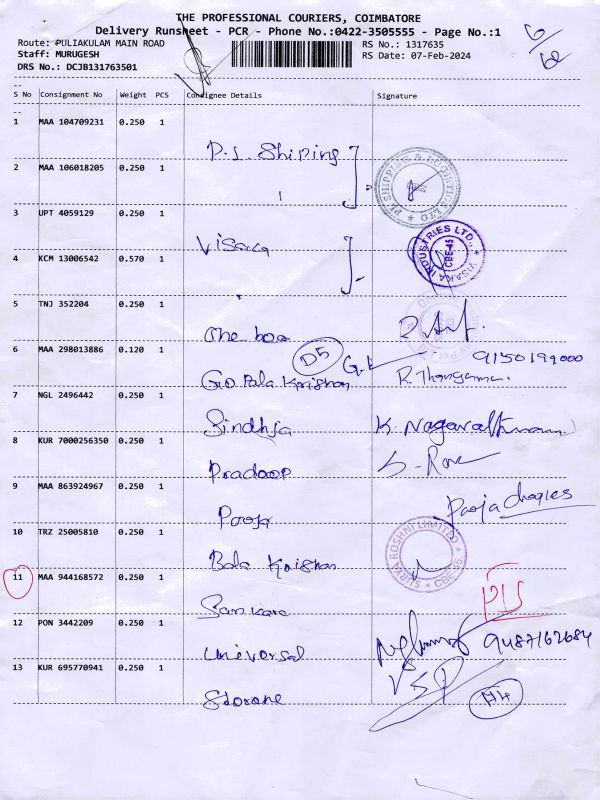 THE PROFESSIONAL COURIERS, COIMBATORE
Delivery Runsheet - PCR - Phone No.:0422-3505555 - Page No.:1
Route: PULIAKULAM MAIN ROAD RS No.: 1317635
Staff: MURUGESH RS Date: 07-Feb-2024
DRS No.: DCJB131763501
S No Consignment No Weight PCS Consignee Details Signature
1 MAA 104709231 0.250 1
P.L. Shiping
2 MAA 106018205 0.250 1
PL SHIPPING & LOGISTICS LTD
3 UPT 4059129 0.250 1
Visaka
VISAKA INDUSTRIES LTD., CBE-45
4 KCM 13006542 0.570 1
5 TNJ 352204 0.250 1
One boo
6 MAA 298013886 0.120 1
D5 G.K 9150199000
Go Pala Krishan R. Thangamma.
7 NGL 2496442 0.250 1
Sindhja K. Nagarathinam
8 KUR 7000256350 0.250 1
Pradoop
9 MAA 863924967 0.250 1
Pooja Pooja
10 TRZ 25005810 0.250 1
Bala Krishan
SURYA ROSHNI LIMITED CBE-45
11 MAA 944168572 0.250 1
Sankara
12 PON 3442209 0.250 1
Universal 9487162684
13 KUR 695770941 0.250 1
Storone H4